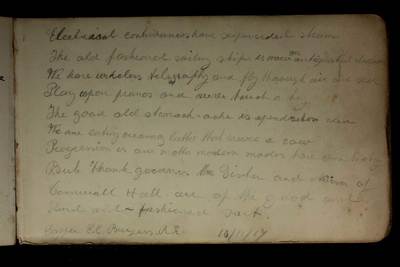 Electrical contrivances have superseded steam
The old fashioned sailing ship is now an antiquated dream
We have wireless telegraphy and fly through air and sea
Play upon pianos and never touch a key
The good old stomach-ache is appendicitis now
We are eating creamy butter that never a cow
Progression is our motto modern modes have
But Thank goodness the Sister and of
Cornwall Hall are of the good
kind old-fashioned sort.